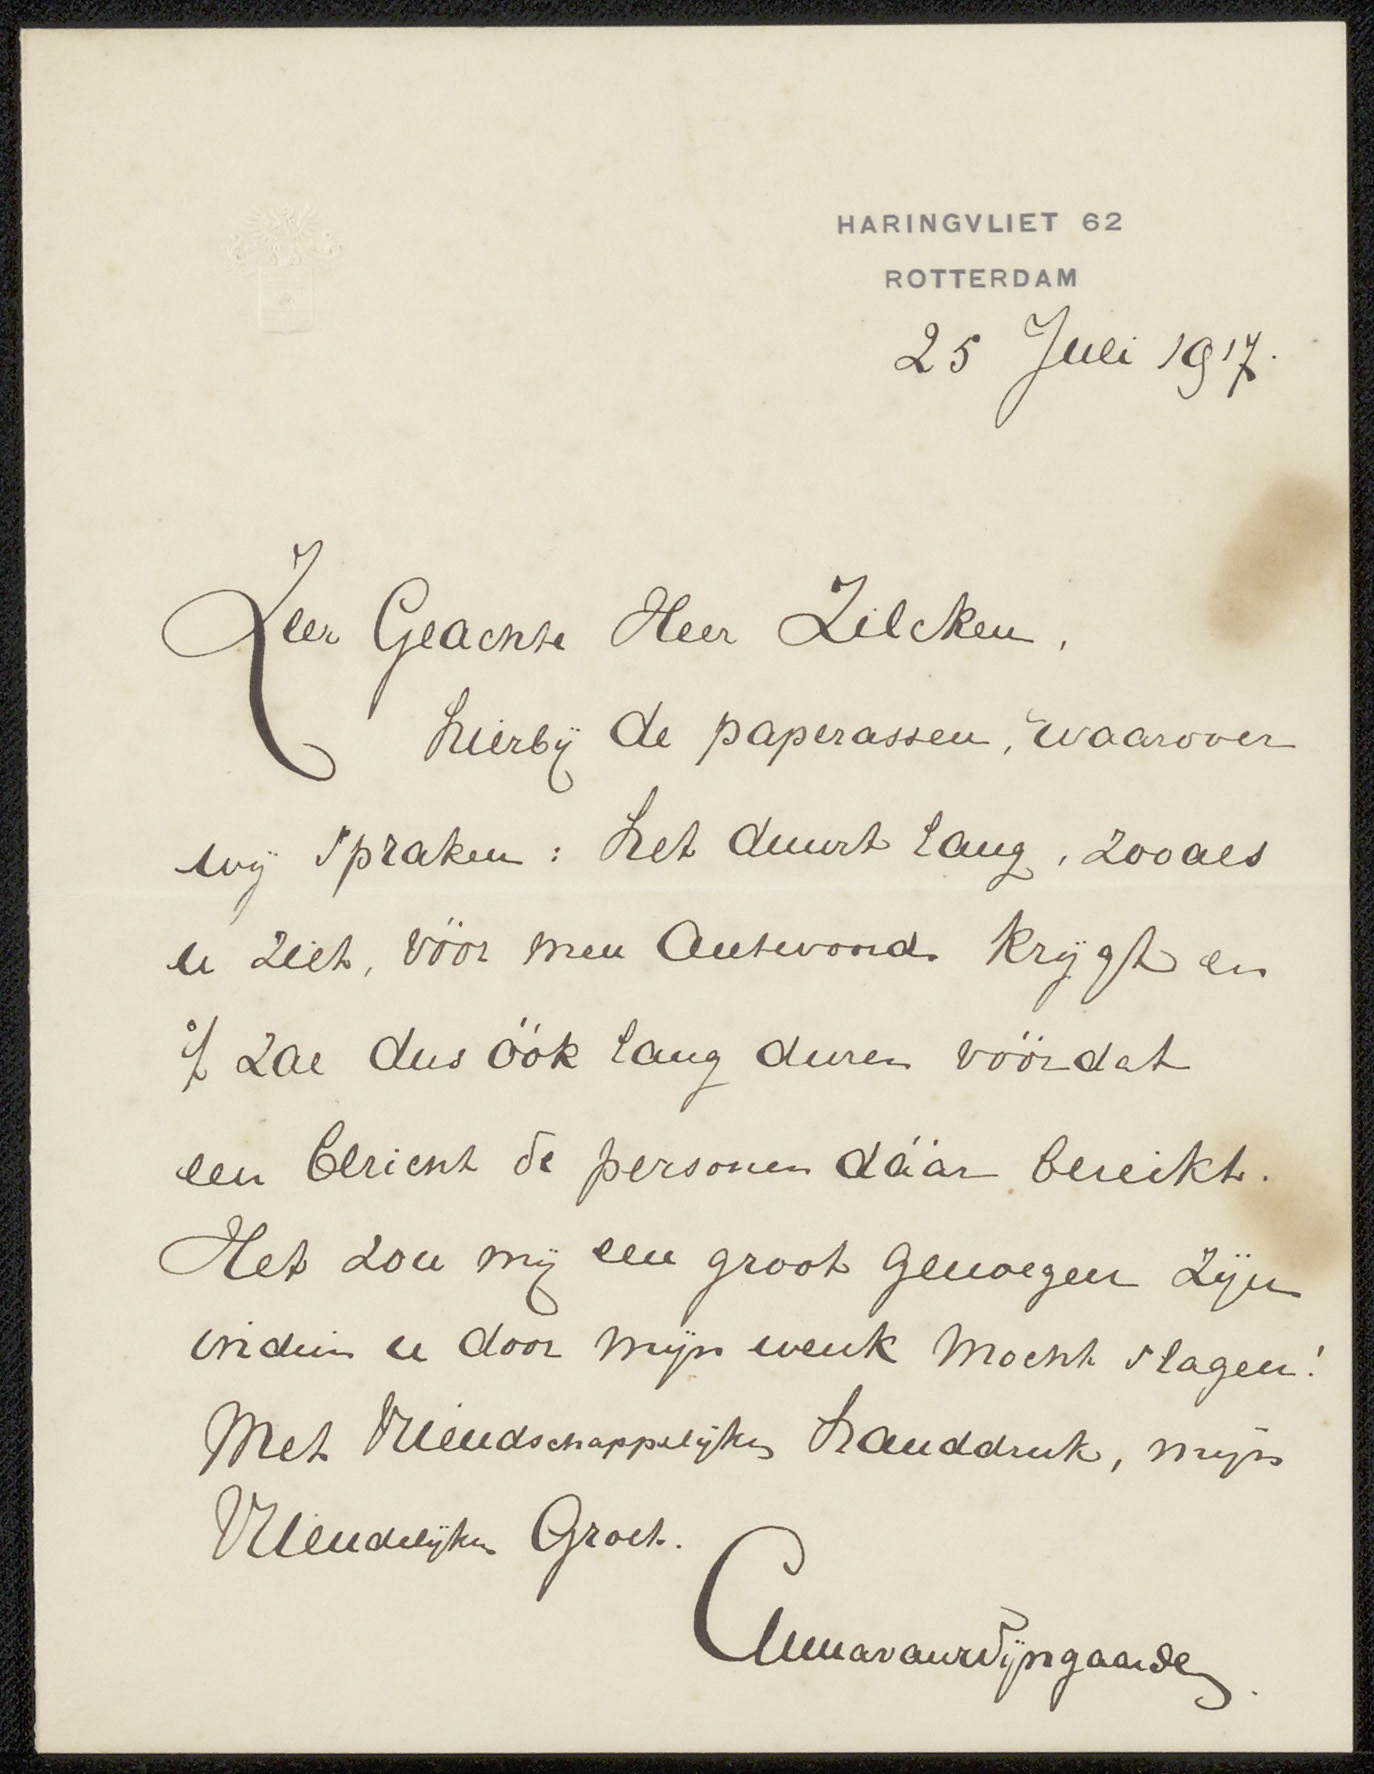 HARINGVLIET 62
ROTTERDAM
25 Juli 1917.
Zeer Geachte Heer Zilcken,
hierbij de paperassen, waarover
wij spraken: het duurt lang, zooals
u ziet, vóór men Antwoord krijgt en
't zal dus óók lang duren vóórdat
een bericht de personen dáár bereikt.
Het zou mij een groot genoegen zijn
indien u door mijn wenk mocht slagen!
Met Vriendschappelijken handdruk, mijn
Vriendelijken Groet.
Anna van Wijngaarden.